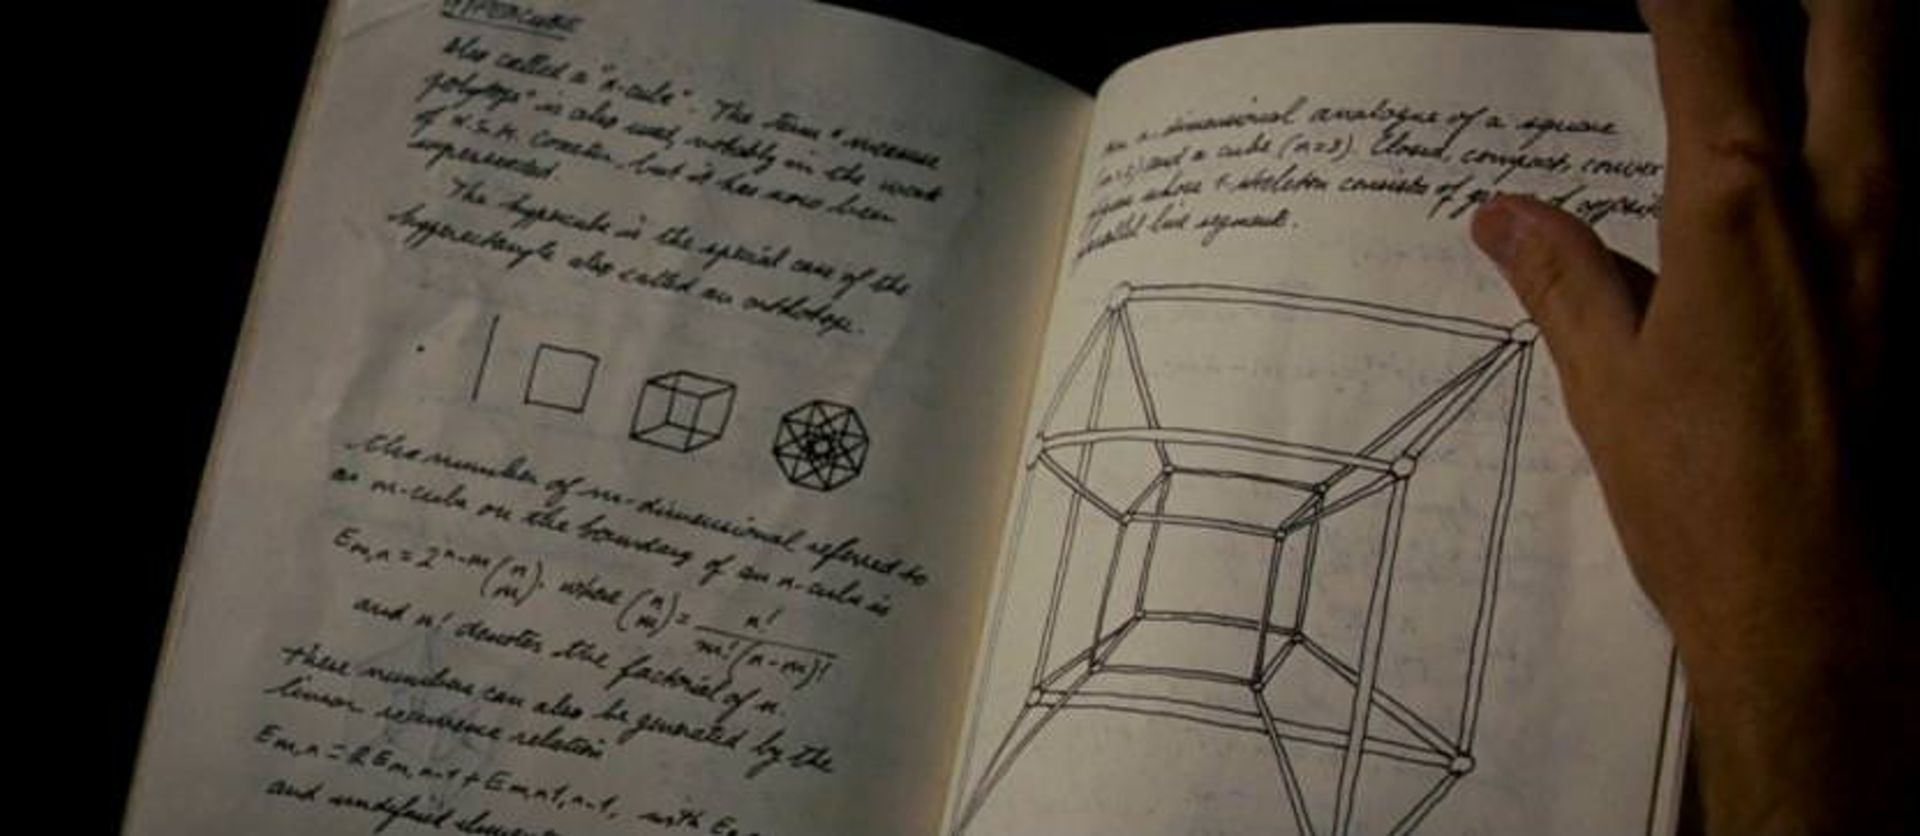 HYPERCUBE
Also called a "n-cube". The term "measure
polytope" is also used, notably in the work
of H.S.M. Coxeter, but it has now been
superseded
The hypercube is the special case of the
hyperrectangle also called an orthotope.
the number of m-dimensional referred to
as m-cube on the boundary of an n-cube is
Em,n = 2^n-m (n m). where (n m) = n! / m!(n-m)!
and n! denotes the factorial of n.
these numbers can also be generated by the
linear recurrence relation
Em,n = 2Em,n-1 + Em-1,n-1, with E
and undefined
dimensional analogue of a square
and a cube (n=3). Closed, compact, convex
whose 1-skeleton consists of of opposite
parallel line segments.